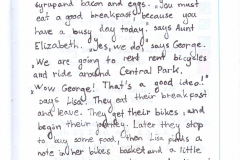 syrup and bacon and eggs. "You must
eat a good breakfast because you
have a busy day today." says Aunt
Elizabeth. "Yes, we do", says George.
We are going to rent bicycles
and ride around Central Park.
"Wow George! That's a good idea!"
says Lisa. They eat their breakfast
and leave. They get their bikes and
begin their journey. Later they stop
to buy some food, then Lisa a
note in her bikes basket and a little